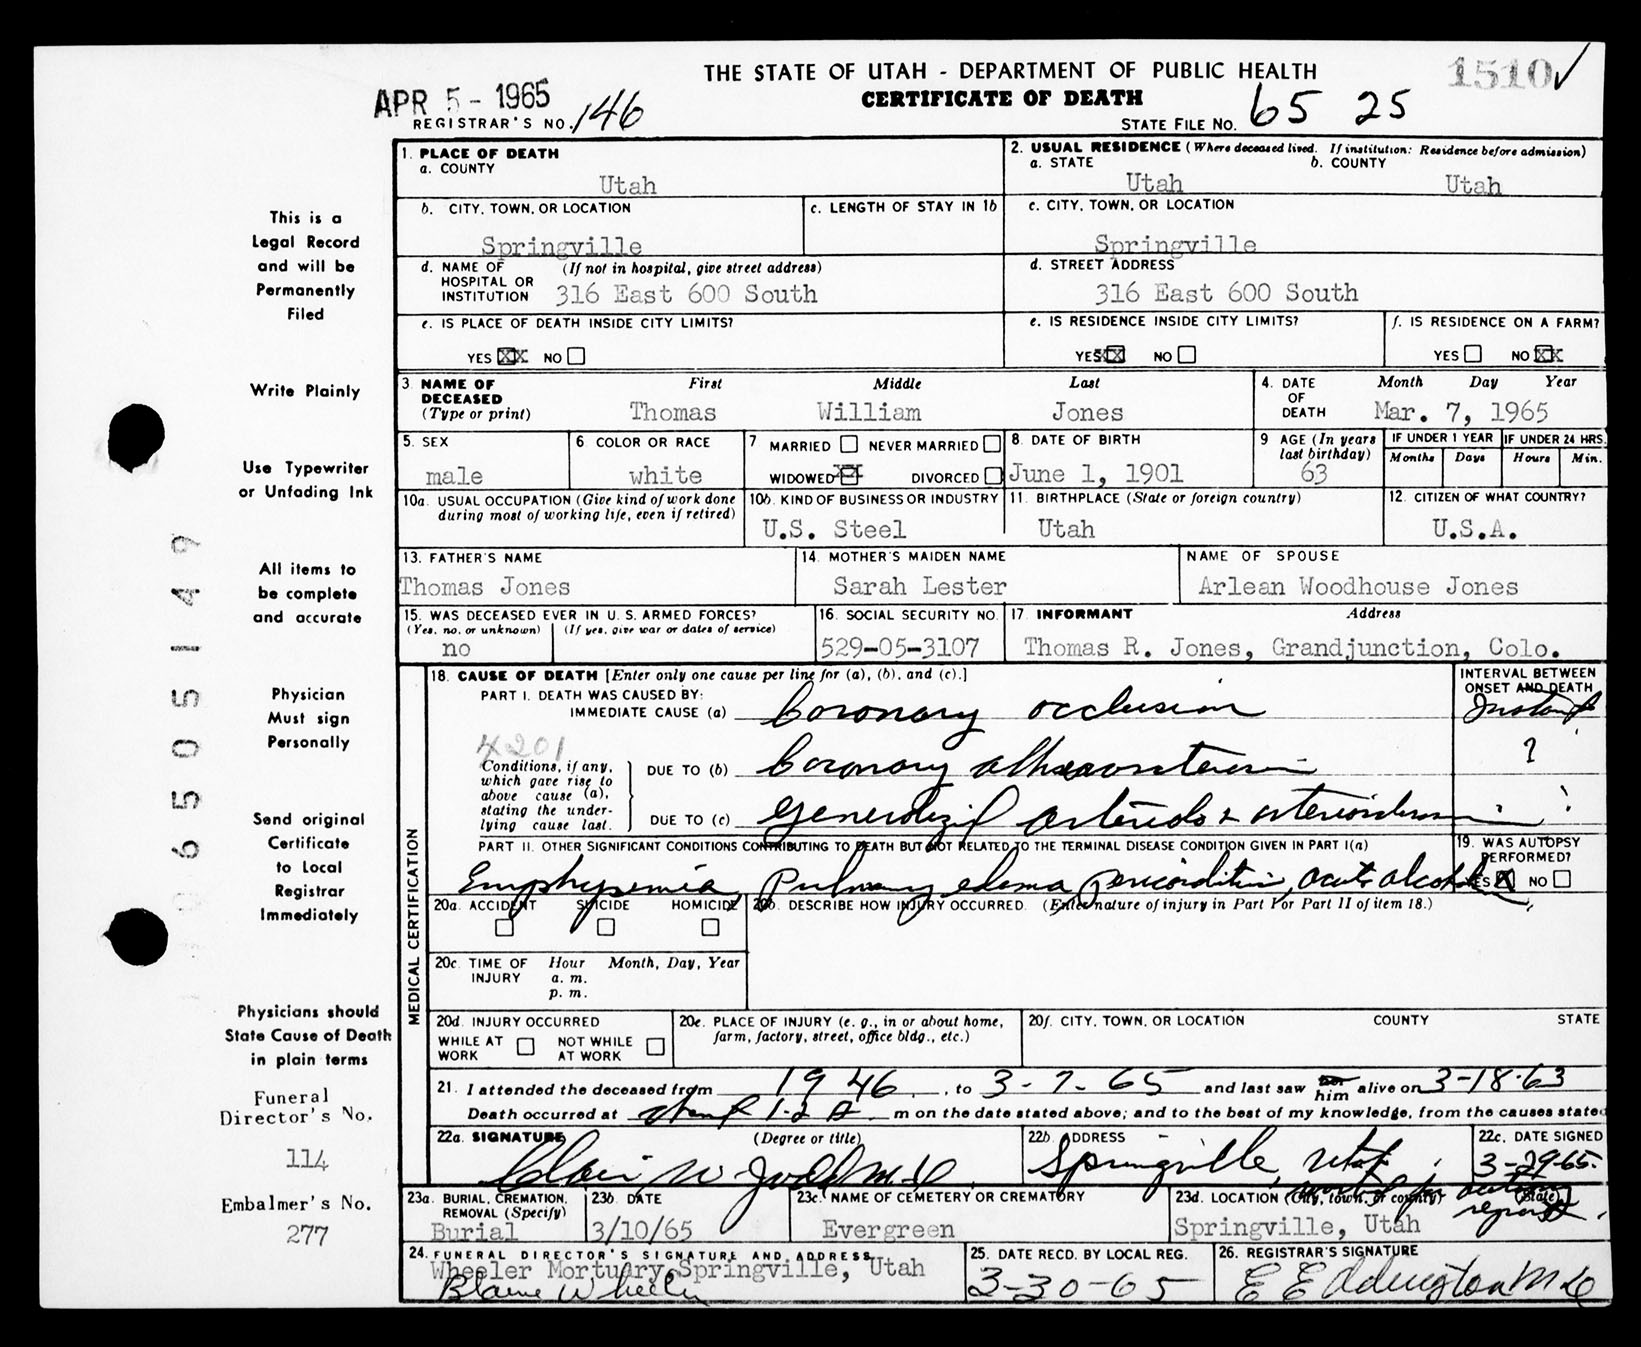 THE STATE OF UTAH - DEPARTMENT OF PUBLIC HEALTH
1510 ✓
APR 5 - 1965
CERTIFICATE OF DEATH
REGISTRAR'S NO. 146
STATE FILE NO. 65 25
1. PLACE OF DEATH
a. COUNTY
Utah
2. USUAL RESIDENCE (Where deceased lived. If institution: Residence before admission)
a. STATE
Utah
b. COUNTY
Utah
b. CITY, TOWN, OR LOCATION
Springville
c. LENGTH OF STAY IN 1b
c. CITY, TOWN, OR LOCATION
Springville
d. NAME OF HOSPITAL OR INSTITUTION
(If not in hospital, give street address)
316 East 600 South
d. STREET ADDRESS
316 East 600 South
e. IS PLACE OF DEATH INSIDE CITY LIMITS?
YES XX NO
e. IS RESIDENCE INSIDE CITY LIMITS?
YES XX NO
f. IS RESIDENCE ON A FARM?
YES NO XX
3 NAME OF DECEASED
(Type or print)
First
Thomas
Middle
William
Last
Jones
4. DATE OF DEATH
Month Day Year
Mar. 7, 1965
5. SEX
male
6 COLOR OR RACE
white
7 MARRIED NEVER MARRIED
WIDOWED X DIVORCED
8. DATE OF BIRTH
June 1, 1901
9 AGE (In years last birthday)
63
IF UNDER 1 YEAR
Months Days
IF UNDER 24 HRS.
Hours Min.
10a. USUAL OCCUPATION (Give kind of work done
during most of working life, even if retired)
10b. KIND OF BUSINESS OR INDUSTRY
U.S. Steel
11. BIRTHPLACE (State or foreign country)
Utah
12. CITIZEN OF WHAT COUNTRY?
U.S.A.
13. FATHER'S NAME
Thomas Jones
14. MOTHER'S MAIDEN NAME
Sarah Lester
NAME OF SPOUSE
Arlean Woodhouse Jones
15. WAS DECEASED EVER IN U. S. ARMED FORCES?
(Yes, no, or unknown) (If yes, give war or dates of service)
no
16. SOCIAL SECURITY NO.
529-05-3107
17. INFORMANT Address
Thomas R. Jones, Grandjunction, Colo.
18. CAUSE OF DEATH [Enter only one cause per line for (a), (b), and (c).]
PART I. DEATH WAS CAUSED BY:
IMMEDIATE CAUSE (a) Coronary occlusion
INTERVAL BETWEEN ONSET AND DEATH
Instant
4201
Conditions, if any,
which gave rise to
above cause (a),
stating the under-
lying cause last.
DUE TO (b) Coronary atherosclerosis
?
DUE TO (c) Generalized arterio & arteriosclerosis
?
PART II. OTHER SIGNIFICANT CONDITIONS CONTRIBUTING TO DEATH BUT NOT RELATED TO THE TERMINAL DISEASE CONDITION GIVEN IN PART I(a)
Emphysemia, Pulmonary edema, pericarditis, acute alcohol
19. WAS AUTOPSY PERFORMED?
YES X NO
20a. ACCIDENT SUICIDE HOMICIDE
20b. DESCRIBE HOW INJURY OCCURRED. (Enter nature of injury in Part I or Part II of item 18.)
20c. TIME OF INJURY
Hour Month, Day, Year
a. m.
p. m.
20d. INJURY OCCURRED
WHILE AT WORK NOT WHILE AT WORK
20e. PLACE OF INJURY (e. g., in or about home,
farm, factory, street, office bldg., etc.)
20f. CITY, TOWN, OR LOCATION COUNTY STATE
21. I attended the deceased from 1946, to 3-7-65 and last saw her him alive on 3-18-63
Death occurred at about 1-2 A m on the date stated above; and to the best of my knowledge, from the causes stated
22a. SIGNATURE (Degree or title)
Clair W Judd M D
22b. ADDRESS
Springville, Utah
22c. DATE SIGNED
3-29-65
waited for autopsy
report.
23a. BURIAL, CREMATION, REMOVAL (Specify)
Burial
23b. DATE
3/10/65
23c. NAME OF CEMETERY OR CREMATORY
Evergreen
23d. LOCATION (City, town, or county) (State)
Springville, Utah
24. FUNERAL DIRECTOR'S SIGNATURE AND ADDRESS
Wheeler Mortuary, Springville, Utah
Blaine Wheeler
25. DATE RECD. BY LOCAL REG.
3-30-65
26. REGISTRAR'S SIGNATURE
E E Eddington M D
MEDICAL CERTIFICATION
This is a
Legal Record
and will be
Permanently
Filed
Write Plainly
Use Typewriter
or Unfading Ink
All items to
be complete
and accurate
Physician
Must sign
Personally
Send original
Certificate
to Local
Registrar
Immediately
Physicians should
State Cause of Death
in plain terms
Funeral
Director's No.
114
Embalmer's No.
277